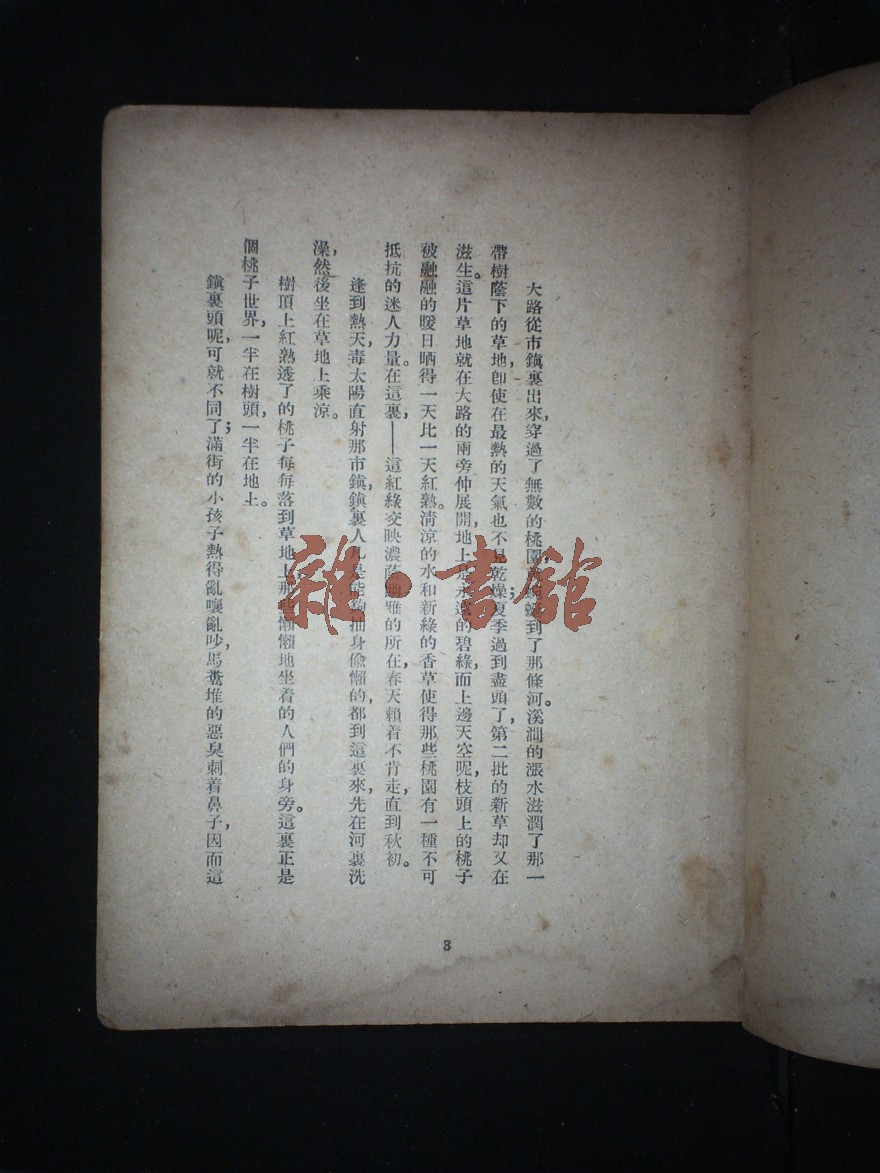 大路從市鎮裏出來，穿過了無數的桃園，到了那條河。溪澗的漲水滋潤了那一
帶樹蔭下的草地，卽使在最熱的天氣也不見乾燥；夏季過到盡頭了，第二批的新草却又在
滋生。這片草地就在大路的兩旁伸展開，地上是永遠的碧綠，而上邊天空呢，枝頭上的桃子
被融融的暖日晒得一天比一天紅熟。淸涼的水和新綠的香草使得那些桃園有一種不可
抵抗的迷人力量。在這裏，——這紅綠交映濃蔭幽雅的所在，春天賴着不肯走，直到秋初。
逢到熱天，毒太陽直射那市鎮，鎮裏人凡是能夠抽身偸懶的，都到這裏來，先在河裏洗
澡，然後坐在草地上乘涼。
樹頂上紅熟透了的桃子每每落到草地上，那些懶懶地坐着的人們的身旁。這裏正是
個桃子世界，一半在樹頭，一半在地上。
鎮裏頭呢，可就不同了；滿街的小孩子熱得亂嚷亂吵，馬糞堆的惡臭刺着鼻子，因而這
3
雜·書館